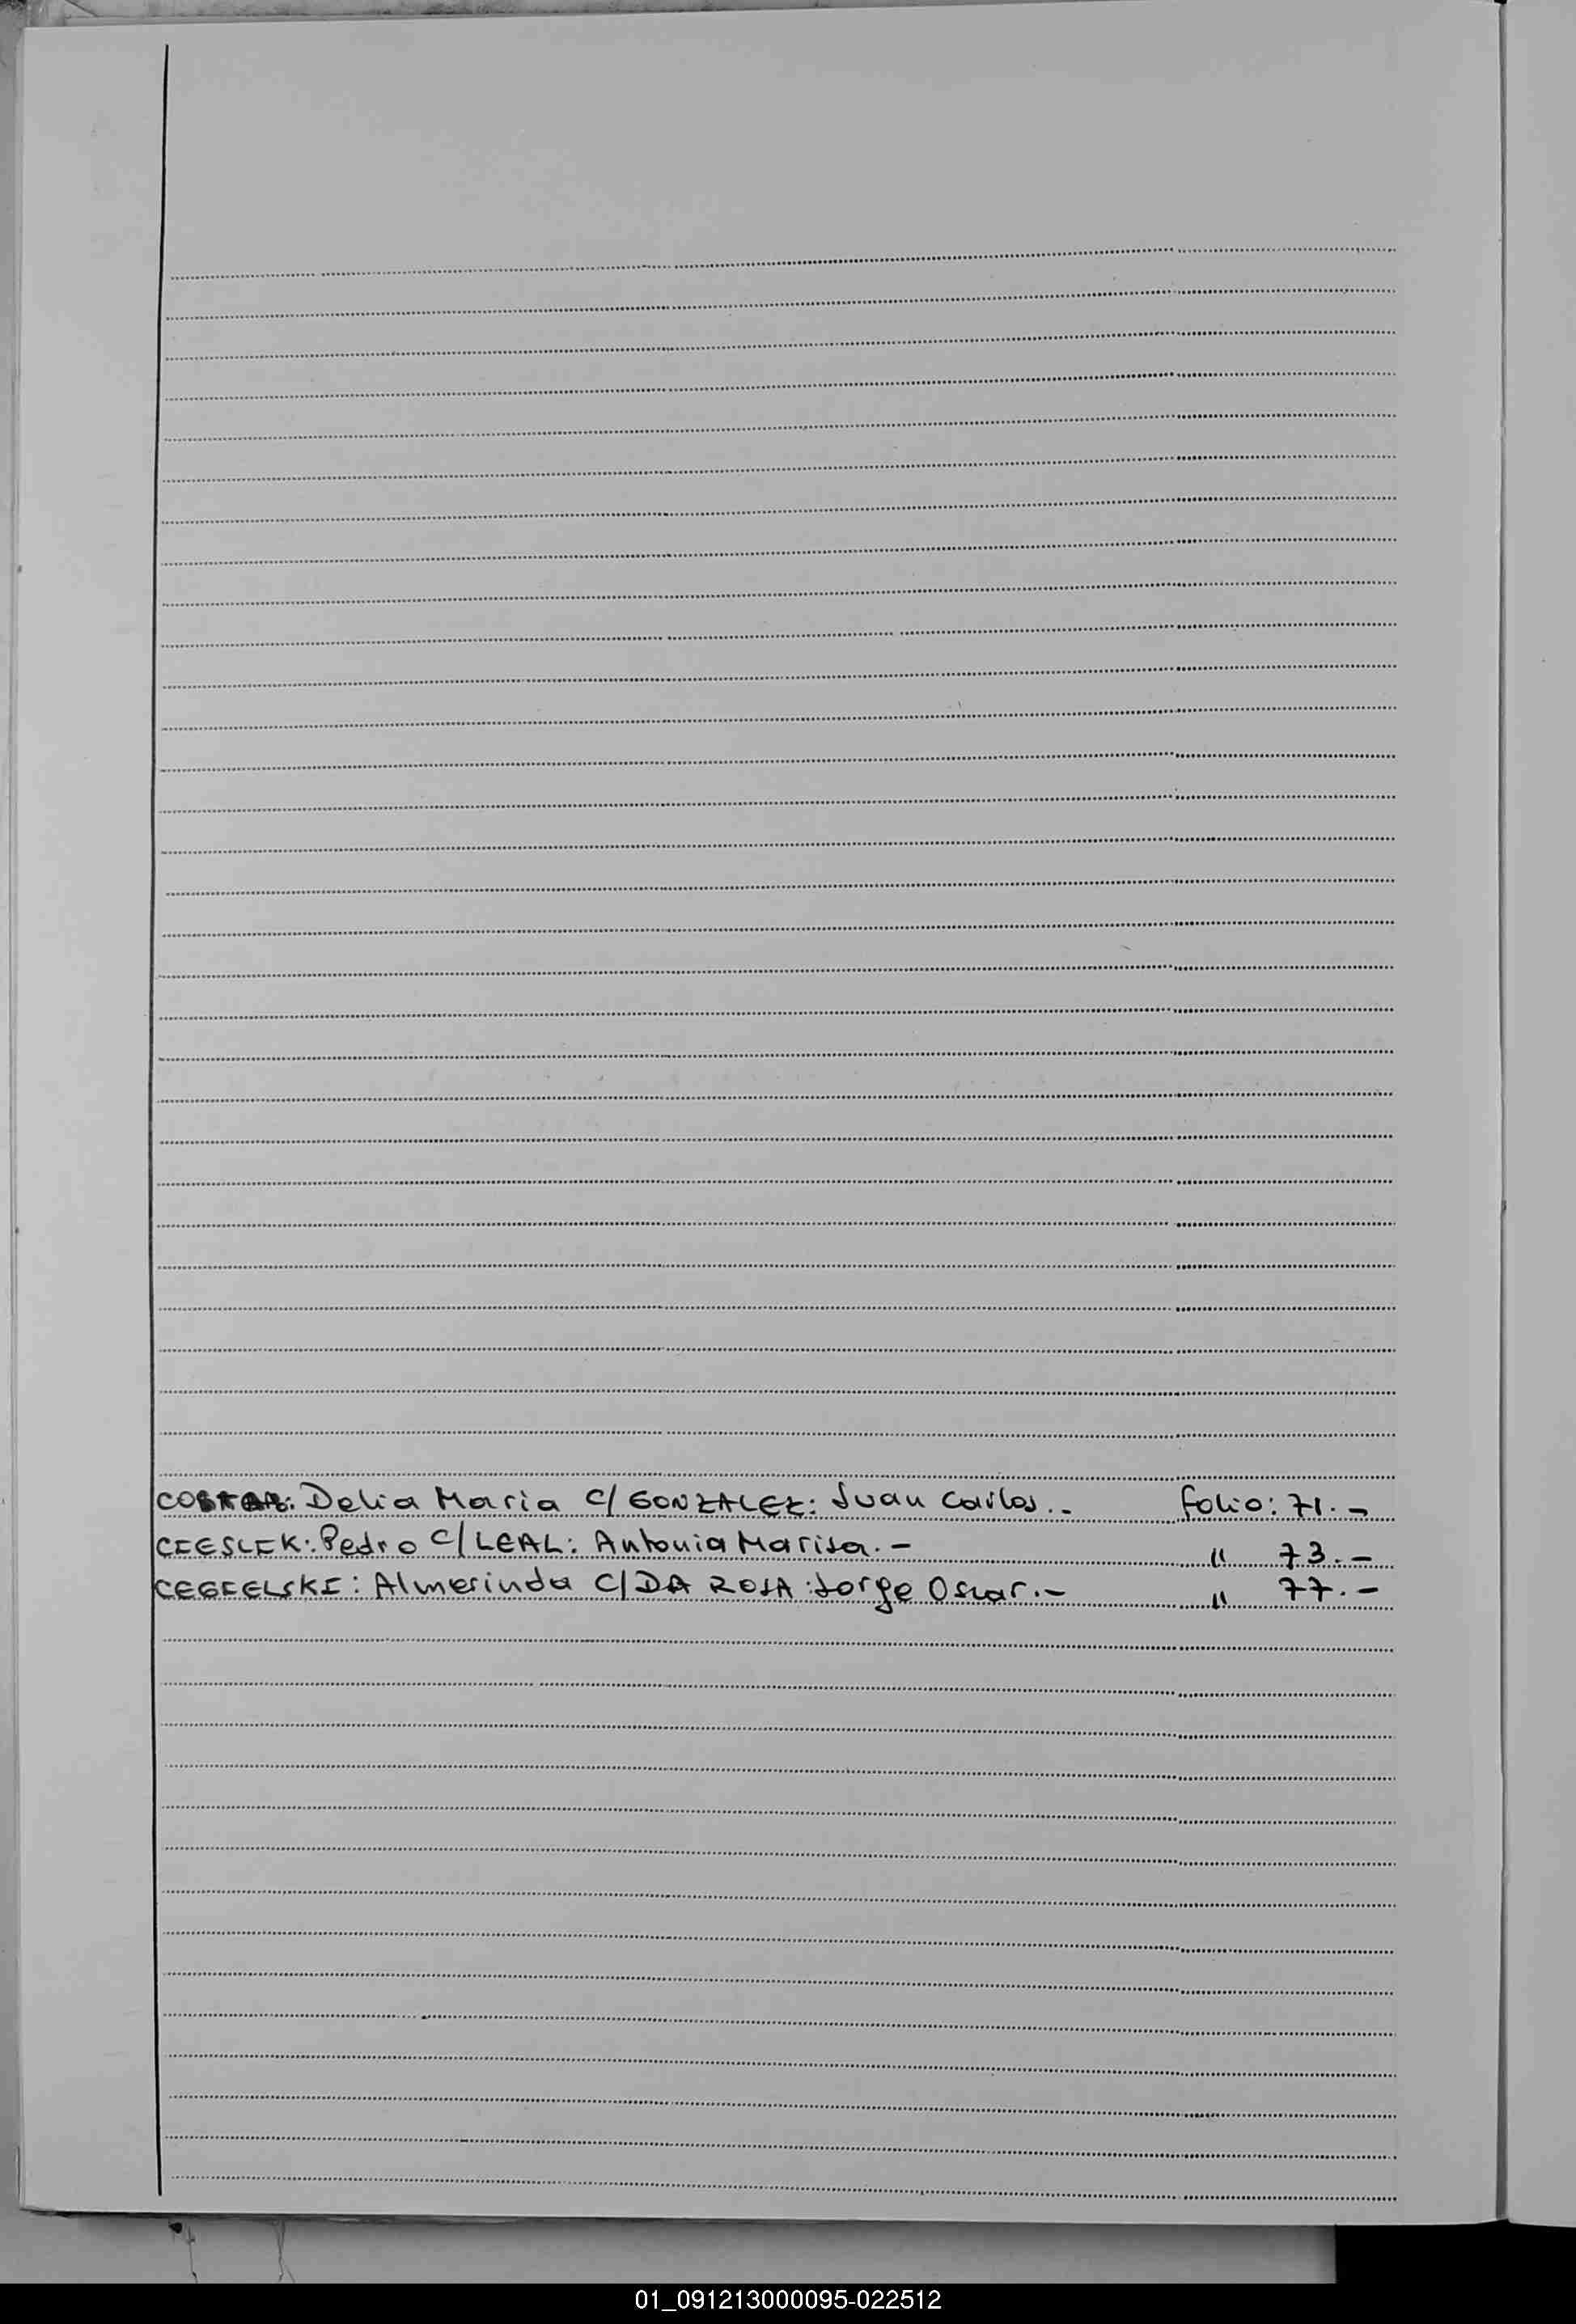 Delia Maria C/ GONZALEZ: Juan Carlos.- Folio: 71.-
CIESLIK: Pedro C/ LEAL: Antonia Marisa.- " 73.-
CEGIELSKI: Almerinda C/ DA ROSA: Jorge Oscar.- " 77.-
01_091213000095-022512